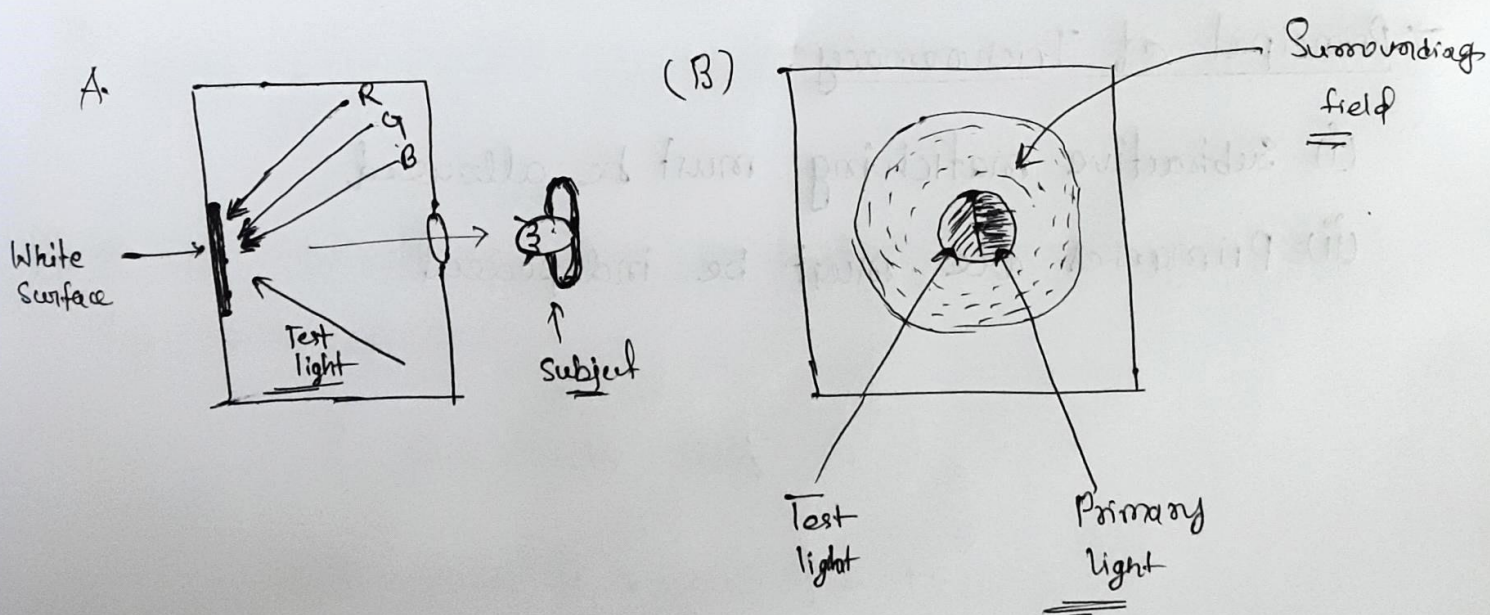 A.
R
G
B
White
Surface
Test
light
Subject
(B)
Surroundiag
field
Test
light
Primary
light